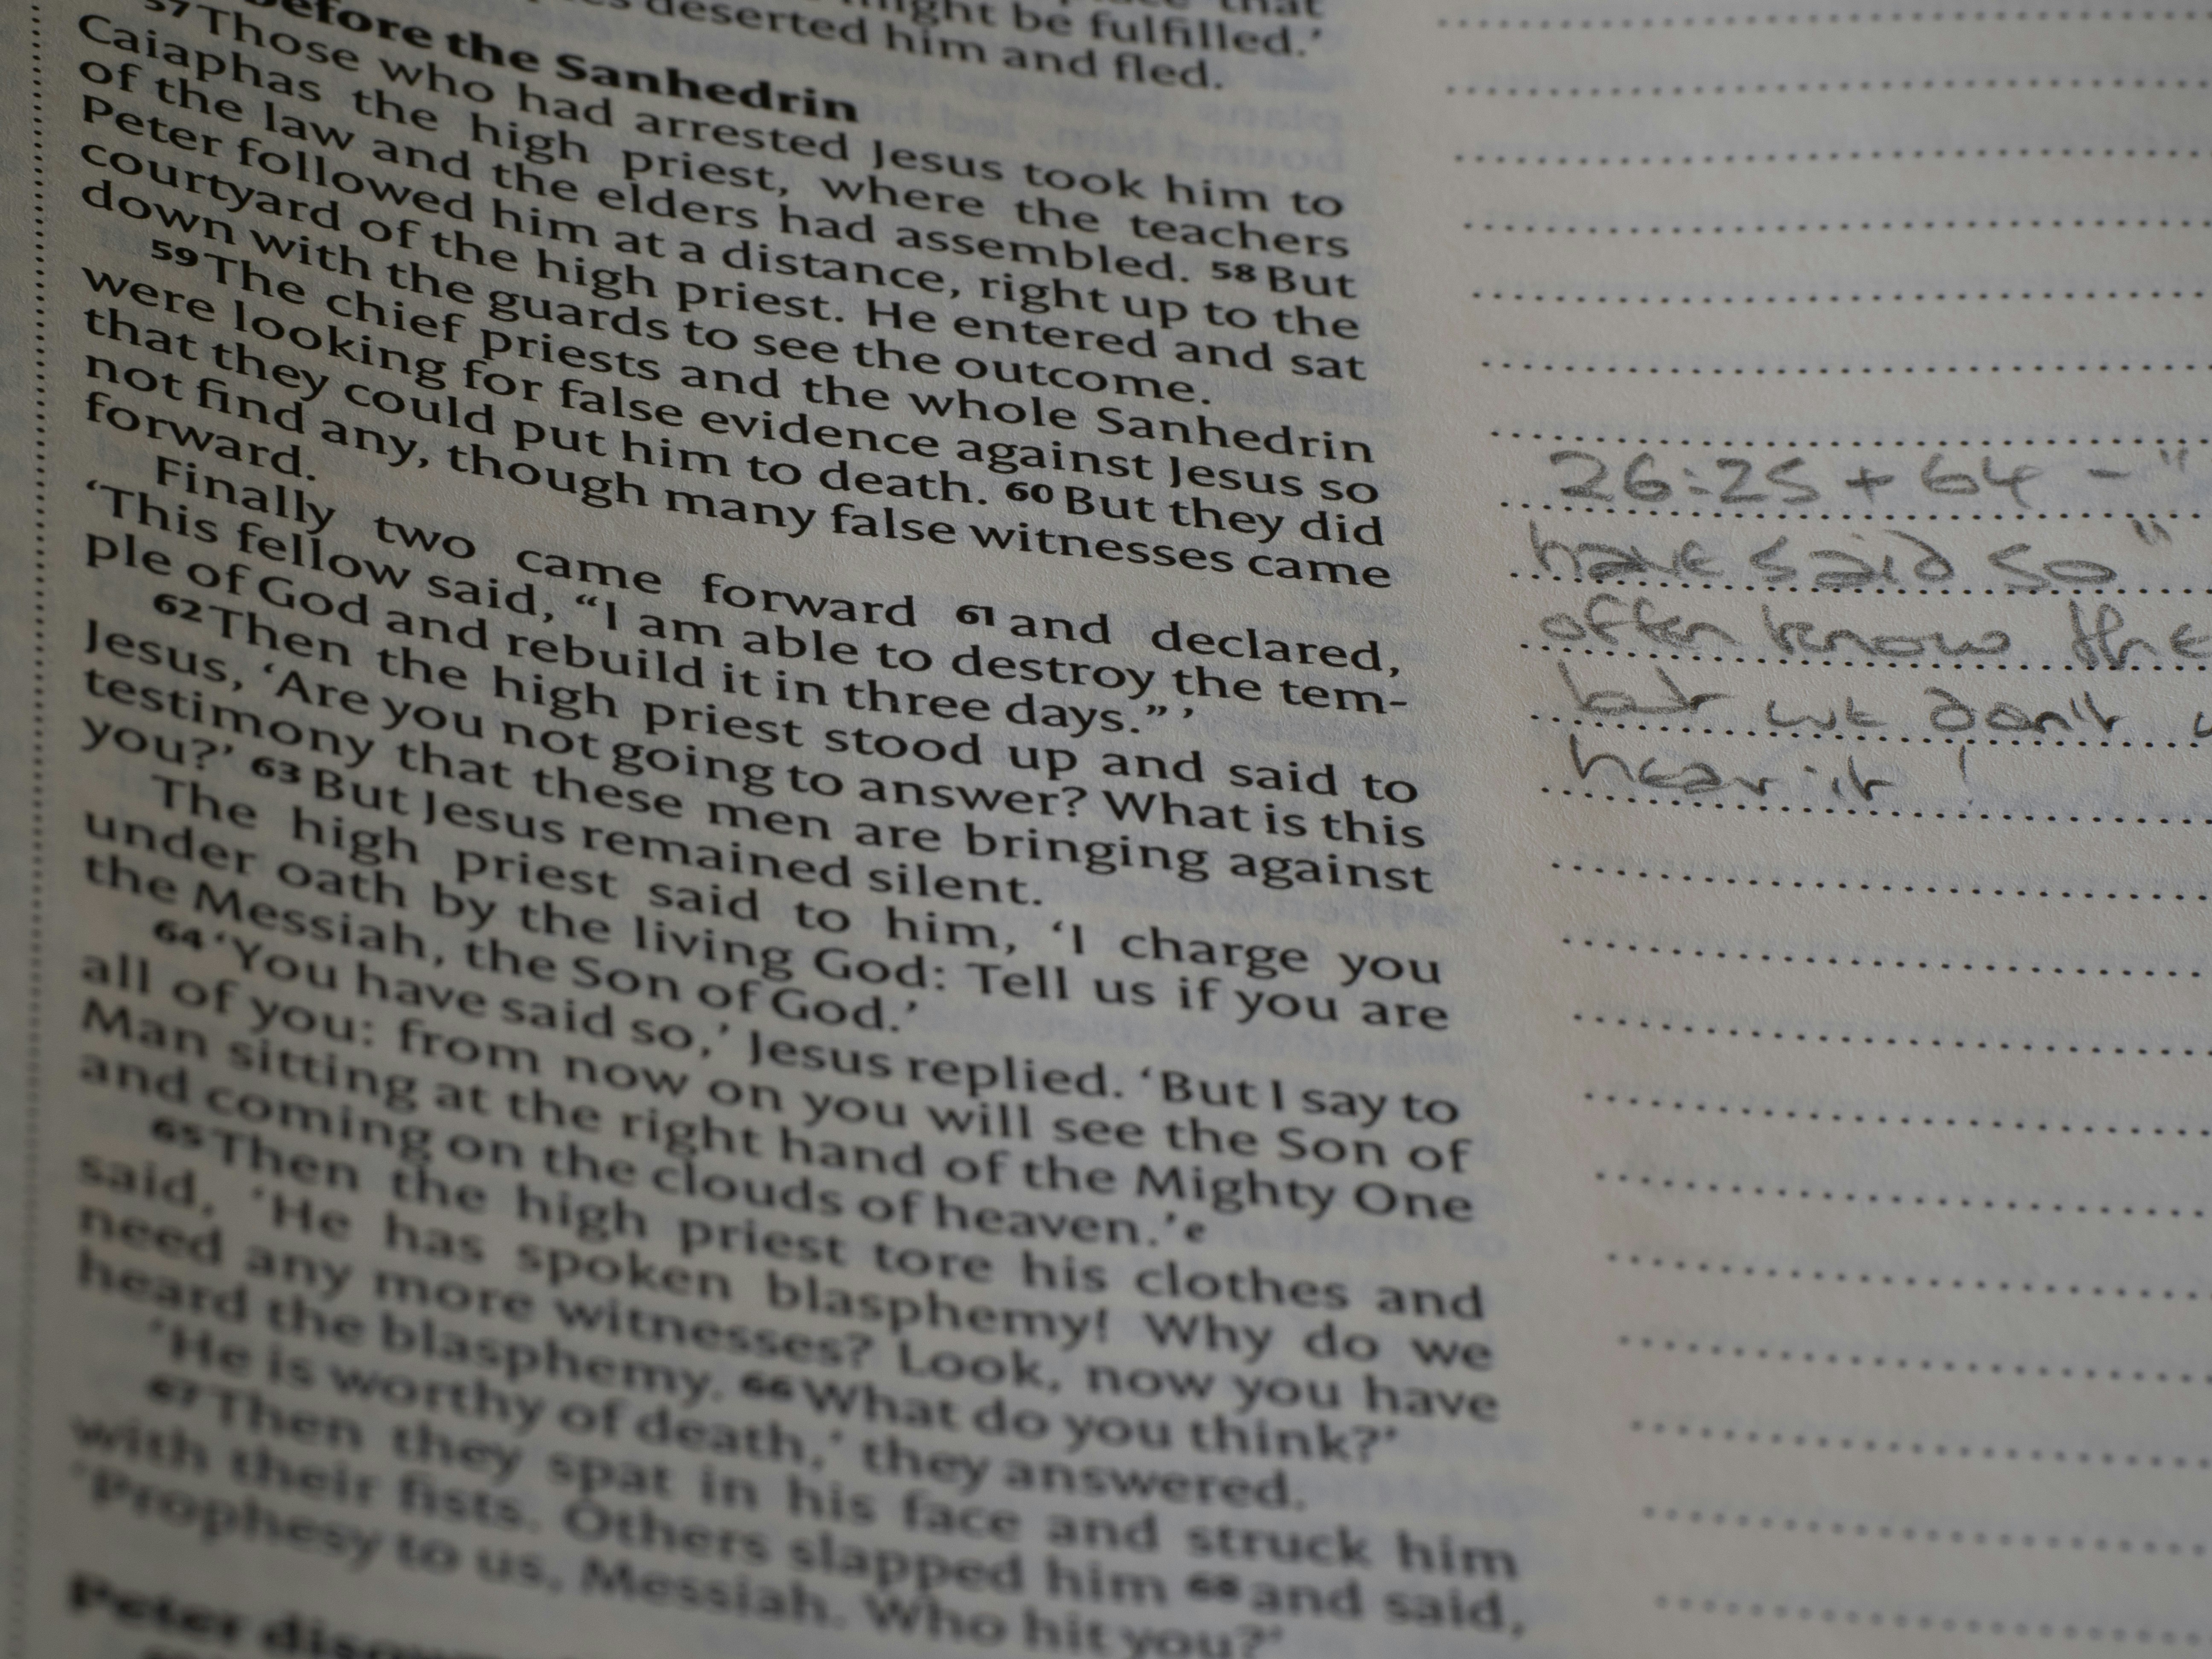 that
might be fulfilled.’
deserted him and fled.
before the Sanhedrin
57 Those who had arrested Jesus took him to
Caiaphas the high priest, where the teachers
of the law and the elders had assembled. 58 But
Peter followed him at a distance, right up to the
courtyard of the high priest. He entered and sat
down with the guards to see the outcome.
59 The chief priests and the whole Sanhedrin
were looking for false evidence against Jesus so
that they could put him to death. 60 But they did
not find any, though many false witnesses came
forward.
Finally two came forward 61 and declared,
‘This fellow said, “I am able to destroy the tem-
ple of God and rebuild it in three days.” ’
62 Then the high priest stood up and said to
Jesus, ‘Are you not going to answer? What is this
testimony that these men are bringing against
you?’ 63 But Jesus remained silent.
The high priest said to him, ‘I charge you
under oath by the living God: Tell us if you are
the Messiah, the Son of God.’
64 ‘You have said so,’ Jesus replied. ‘But I say to
all of you: from now on you will see the Son of
Man sitting at the right hand of the Mighty One
and coming on the clouds of heaven.’ e
65 Then the high priest tore his clothes and
said, ‘He has spoken blasphemy! Why do we
need any more witnesses? Look, now you have
heard the blasphemy. 66 What do you think?’
‘He is worthy of death,’ they answered.
67 Then they spat in his face and struck him
with their fists. Others slapped him 68 and said,
‘Prophesy to us, Messiah. Who hit you?’
Peter
26:25 + 64 – "
have said so"
often know the
but we don't
hear it !